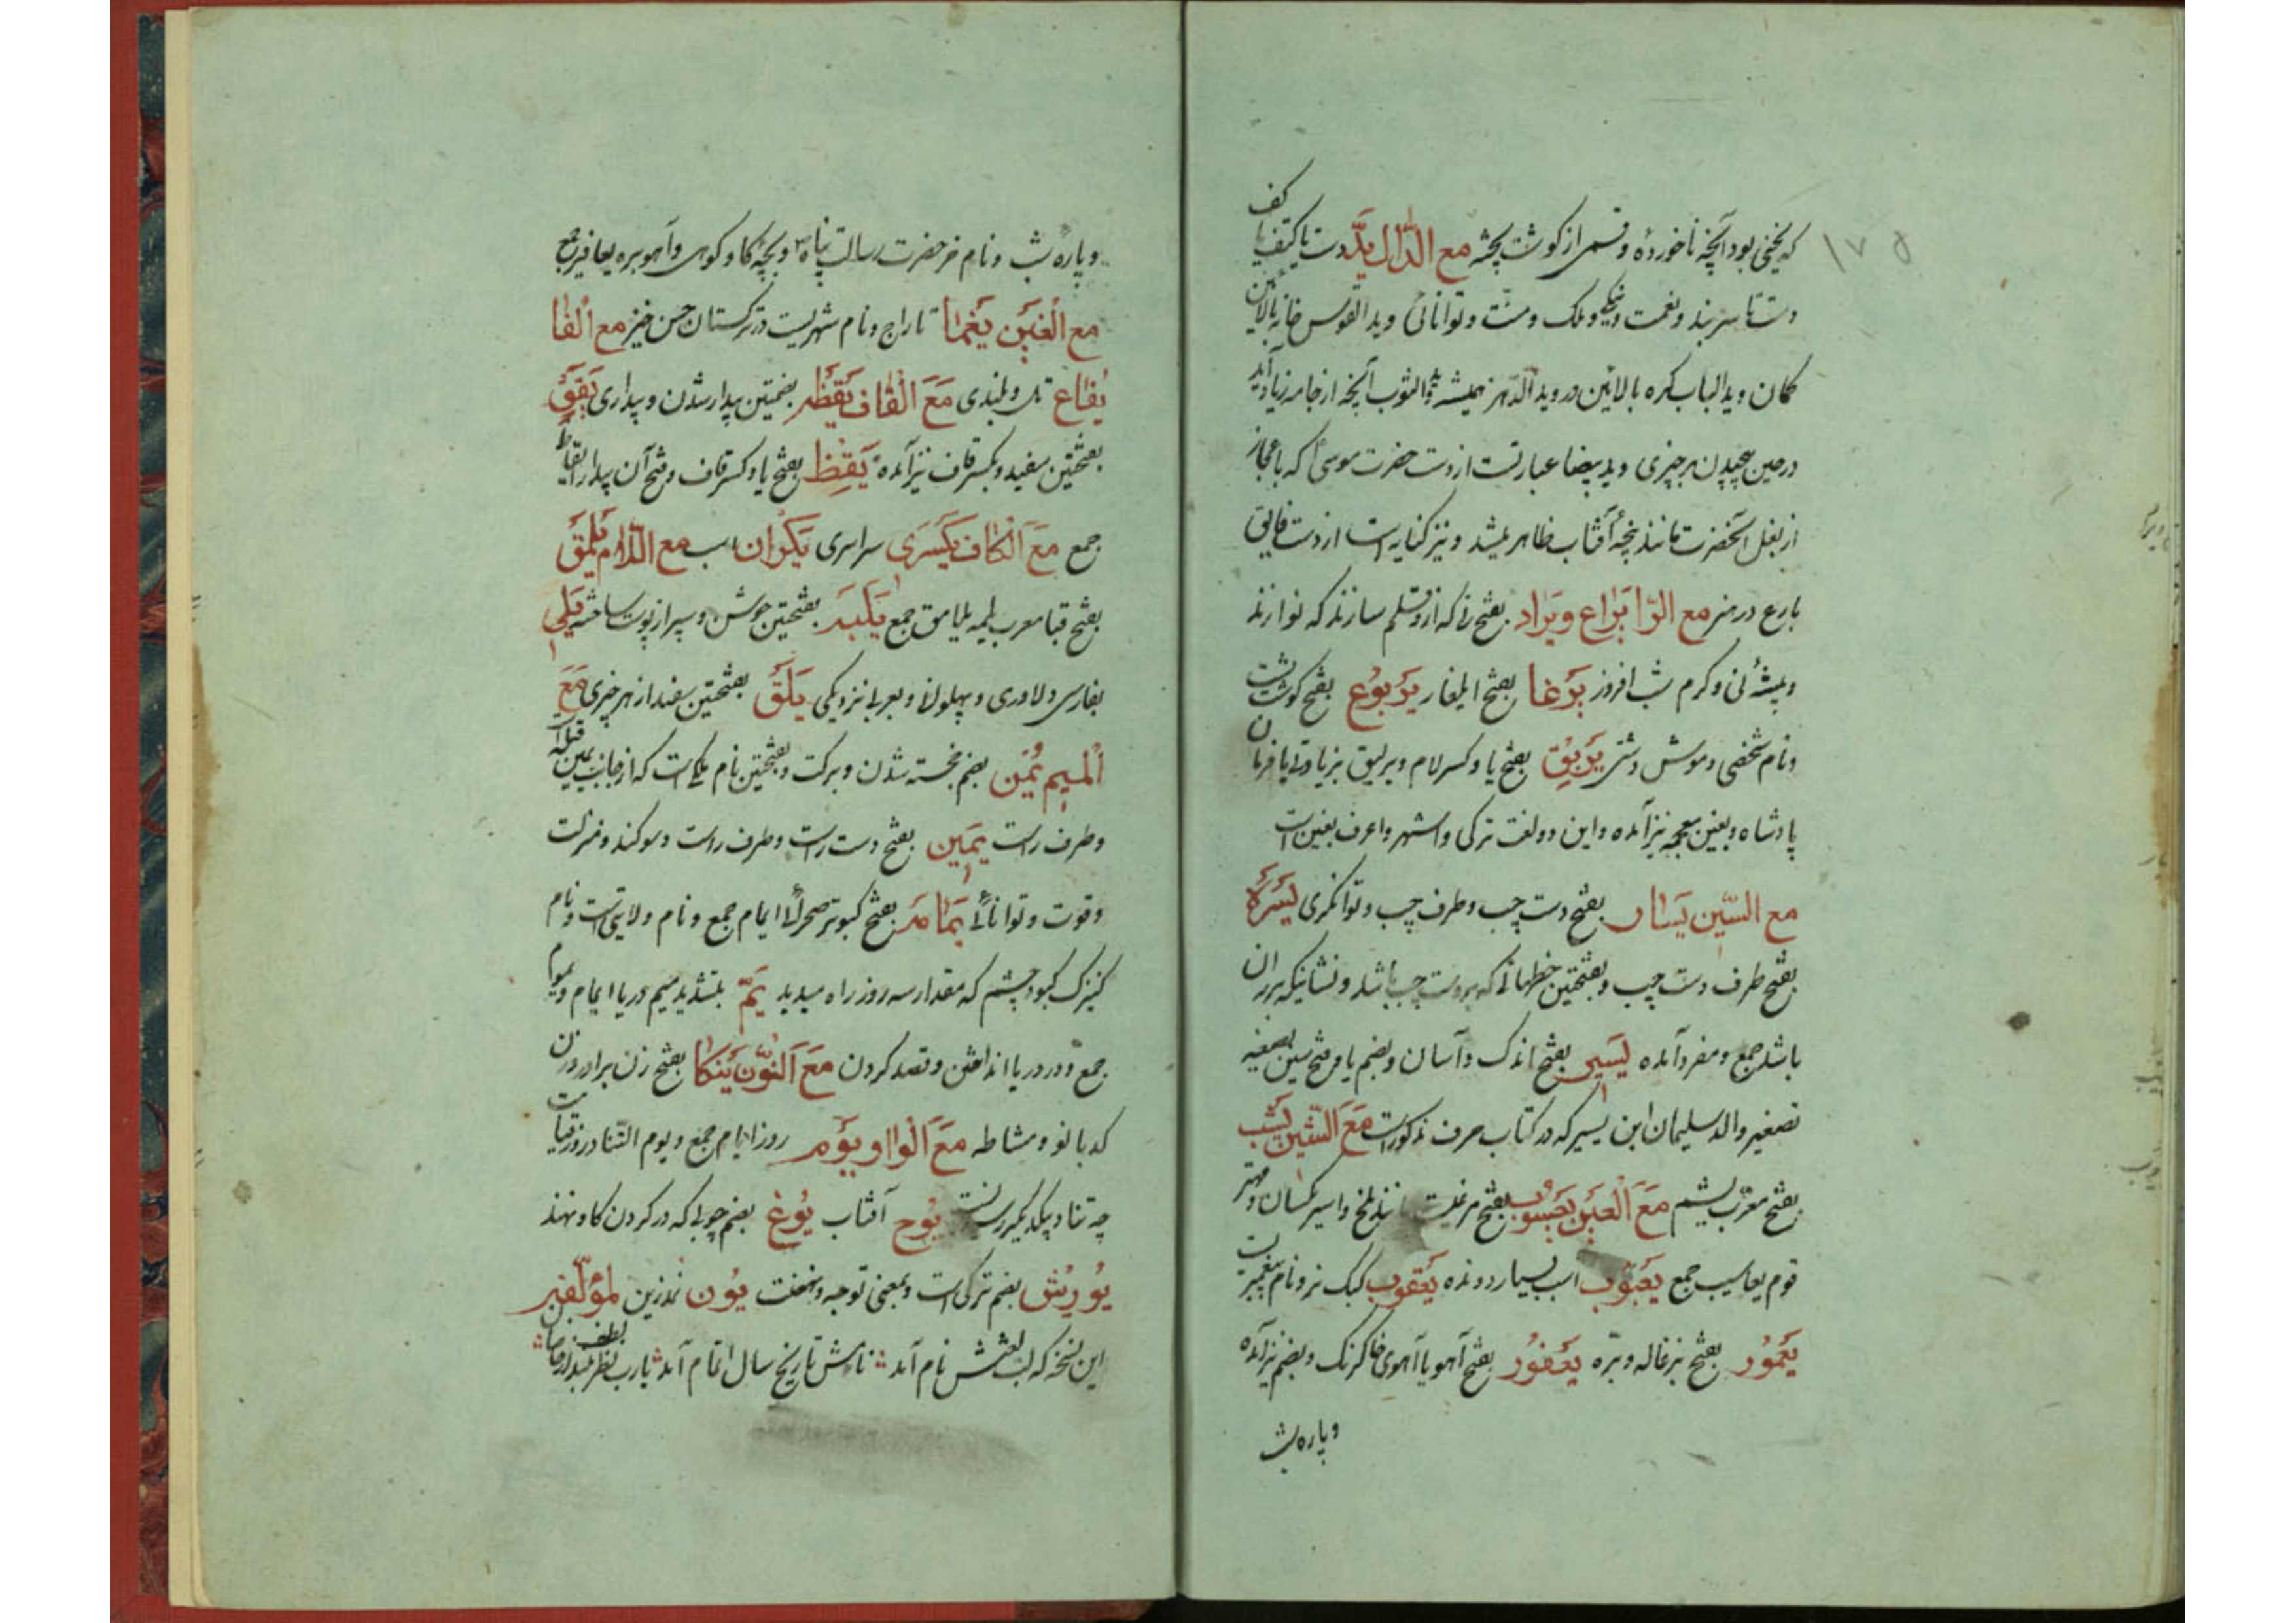 که یخنی بود آنچه ناخورده و قسمی از گوشت پخته مع الدّال یَدّ دست یا کتف یا کف
دست تا سر بند و نعمت و نیکی و ملک و منت و توانائی و ید القوس خانه بالائین
کمان و ید الباب کره بالائین در و ید الدّهر همیشه و ید الثوب آنچه از جامه زیاد آید
در حین پیچیدن بر چیزی و ید بیضا عبارتست از دست حضرت موسیٰ که باعجاز
از بغل آنحضرت مانند پنجهٔ آفتاب ظاهر میشد و نیز کنایه است از دست فایق
بارع در هنر مع الرّا یَراع و یَراد بفتح نی که ازو قلم سازند که نوازند
و بیشهٔ نی و کرم شب افروز یَرغا بفتح ایلغار یَربُوع بفتح گوشت پشت
و نام شخصی و موش دشتی یَریِق بفتح یا و کسر لام و یرلیق بزیادتی یا فرمان
پادشاه و بغین معجمه نیز آمده و این دو لغت ترکی و اشهر و اعرف بغین است
مع السّین یَسار بفتح دست چپ و طرف چپ و توانگری یَسَرَة
بفتح طرف دست چپ و بفتحتین خطهائی که بر دست چپ باشد و نشانیکه بر ران
باشد جمع و مفرد آمده یَسیر بفتح اندک و آسان و بضم یا و فتح سین بصیغه
تصغیر والد سلیمان ابن یسیر که در کتاب صرف مذکور است مَعَ الشّین یَشب
بفتح معرّب یشم مَعَ العَین یَعسُوب بفتح مرغیست مانند ملخ و امیر مگسان و مهتر
قوم یعاسیب جمع یَعبُوب اسب بسیار دونده یَعقوب کبک نر و نام پیغمبریست
یَعمُور بفتح بزغاله و برّه یَعفُور بفتح آهو یا آهوی خاکرنگ و بضم نیز آمده
و پاره شب
و پاره شب و نام خر حضرت رسالت پناه و بچه گاو کوهی و آهوبره یعافیر جمع
مع الغین یَغما تاراج و نام شهریست در ترکستان حسن خیز مع الفا
یَفاع تل و بلندی مَعَ القاف یَقَظَه بفتحتین بیدار شدن و بیداری یَقَق
بفتحتین سفید و بکسر قاف نیز آمده یَقِظ بفتح یا و کسر قاف و فتح آن بیدار ایقاظ
جمع مَعَ الکاف یکسَری سراسری یَکران اسب مع اللّام یَلمَق
بفتح قبا معرب یلمه یلامق جمع یَلَبَه بفتحتین جوشن و سپر از پوست ساخته یَلی
بفارسی دلاوری و پهلوانی و بعربی نزدیکی یَلَق بفتحتین سفید از هر چیزی مَعَ
المیم یُمن بضم خجسته شدن و برکت و بفتحتین نام ملکیست که از جانب یمین قبله است
و طرف راست یَمین بفتح دست راست و طرف راست و سوگند و منزلت
و قوت و توانائی یَمامَه بفتح کبوتر صحرائی ایمام جمع و نام ولایتی است و نام
کنیزک کبود چشم که مقدار سه روز راه میدید یَمّ بتشدید میم دریا ایمام و یموم
جمع و در دریا انداختن و قصد کردن مَعَ النّون یَنکا بفتح زن برادر و زن
کدبانو و مشاطه مَعَ الواو یَوم روز ایام جمع و یوم التناد روز قیامت
چه تناد یکدیگر را یُوح آفتاب یُوغ بضم چوبی که در گردن گاو نهند
یُورِش بضم ترکی است و بمعنی توجه و نهضت یُون نمد زین لمؤلّفه
این نسخه که لب لغتش نام آمد نامش تاریخ سال اتمام آمد یا رب بنظر